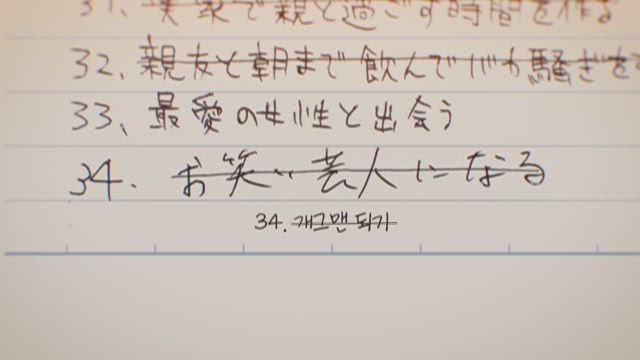 31、実家で親と過ごす時間を作る
32、親友と朝まで飲んでバカ騒ぎを
33、最愛の女性と出会う
34. お笑い芸人になる
34. 개그맨 되기